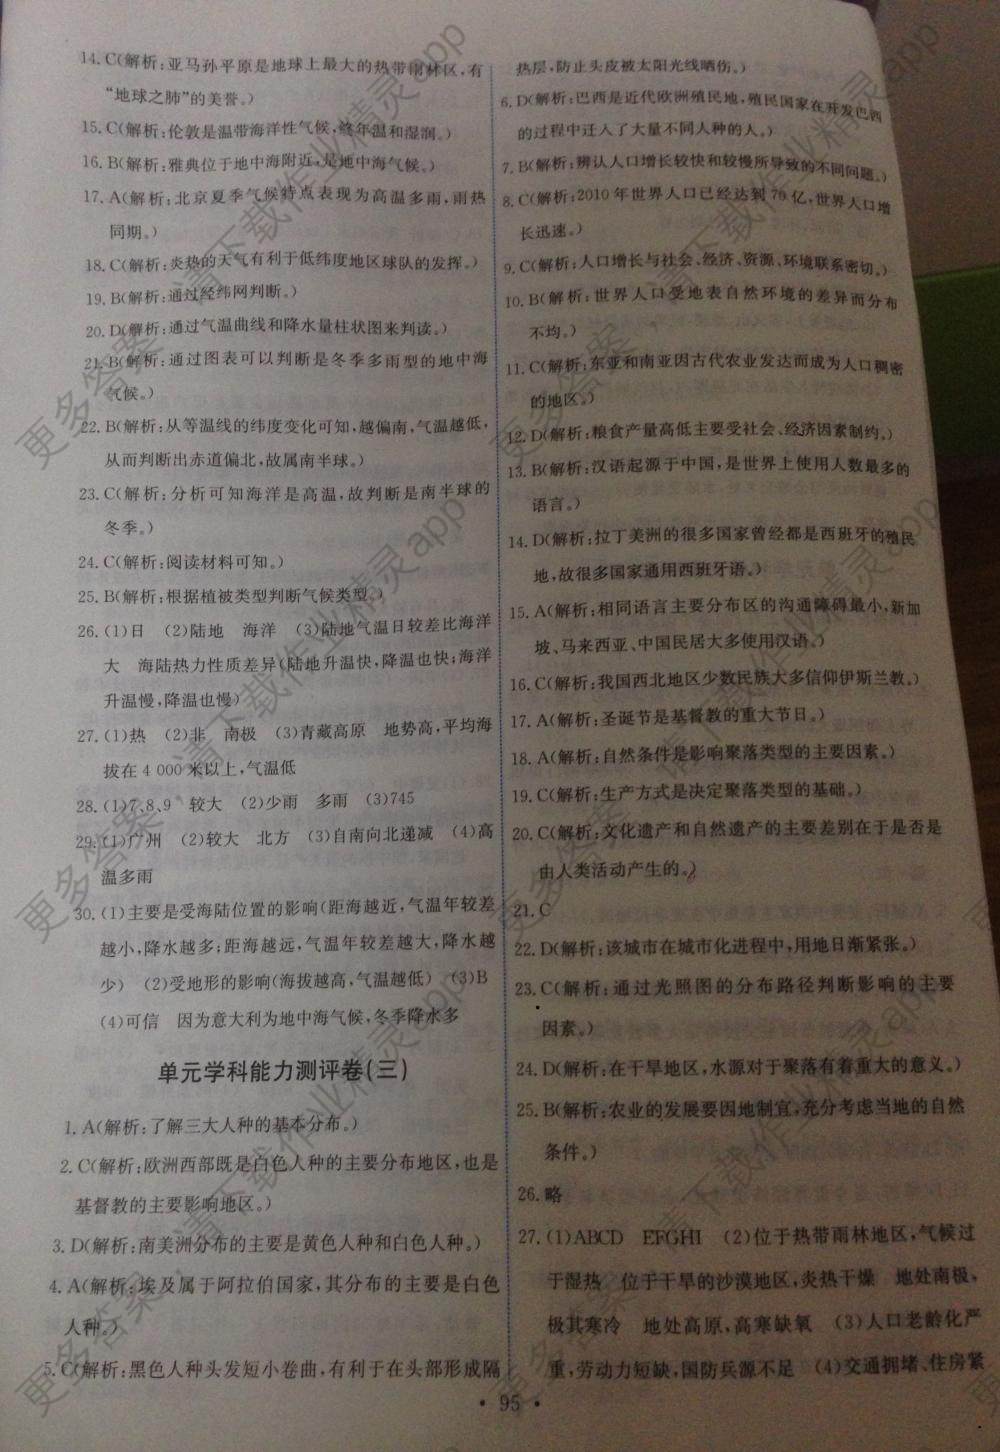 14. C(解析:亚马孙平原是地球上最大的热带雨林区,有
“地球之肺”的美誉。)
15. C(解析:伦敦是温带海洋性气候,终年温和湿润。)
16. B(解析:雅典位于地中海附近,是地中海气候。)
17. A(解析:北京夏季气候特点表现为高温多雨,雨热
同期。)
18. C(解析:炎热的天气有利于低纬度地区球队的发挥。)
19. B(解析:通过经纬网判断。)
20. D(解析:通过气温曲线和降水量柱状图来判读。)
21. B(解析:通过图表可以判断是冬季多雨型的地中海
气候。)
22. B(解析:从等温线的纬度变化可知,越偏南,气温越低,
从而判断出赤道偏北,故属南半球。)
23. C(解析:分析可知海洋是高温,故判断是南半球的
冬季。)
24. C(解析:阅读材料可知。)
25. B(解析:根据植被类型判断气候类型。)
26. (1)日 (2)陆地 海洋 (3)陆地气温日较差比海洋
大 海陆热力性质差异(陆地升温快,降温也快;海洋
升温慢,降温也慢)
27. (1)热 (2)非 南极 (3)青藏高原 地势高,平均海
拔在4 000米以上,气温低
28. (1)7、8、9 较大 (2)少雨 多雨 (3)745
29. (1)广州 (2)较大 北方 (3)自南向北递减 (4)高
温多雨
30. (1)主要是受海陆位置的影响(距海越近,气温年较差
越小,降水越多;距海越远,气温年较差越大,降水越
少) (2)受地形的影响(海拔越高,气温越低) (3)B
(4)可信 因为意大利为地中海气候,冬季降水多
单元学科能力测评卷(三)
1. A(解析:了解三大人种的基本分布。)
2. C(解析:欧洲西部既是白色人种的主要分布地区,也是
基督教的主要影响地区。)
3. D(解析:南美洲分布的主要是黄色人种和白色人种。)
4. A(解析:埃及属于阿拉伯国家,其分布的主要是白色
人种。)
5. C(解析:黑色人种头发短小卷曲,有利于在头部形成隔
热层,防止头皮被太阳光线晒伤。)
6. D(解析:巴西是近代欧洲殖民地,殖民国家在开发巴西
的过程中迁入了大量不同人种的人。)
7. B(解析:辨认人口增长较快和较慢所导致的不同问题。)
8. C(解析:2010年世界人口已经达到70亿,世界人口增
长迅速。)
9. C(解析:人口增长与社会、经济、资源、环境联系密切。)
10. B(解析:世界人口受地表自然环境的差异而分布
不均。)
11. C(解析:东亚和南亚因古代农业发达而成为人口稠密
的地区。)
12. D(解析:粮食产量高低主要受社会、经济因素制约。)
13. B(解析:汉语起源于中国,是世界上使用人数最多的
语言。)
14. D(解析:拉丁美洲的很多国家曾经都是西班牙的殖民
地,故很多国家通用西班牙语。)
15. A(解析:相同语言主要分布区的沟通障碍最小,新加
坡、马来西亚、中国民居大多使用汉语。)
16. C(解析:我国西北地区少数民族大多信仰伊斯兰教。)
17. A(解析:圣诞节是基督教的重大节日。)
18. A(解析:自然条件是影响聚落类型的主要因素。)
19. C(解析:生产方式是决定聚落类型的基础。)
20. C(解析:文化遗产和自然遗产的主要差别在于是否是
由人类活动产生的。)
21. C
22. D(解析:该城市在城市化进程中,用地日渐紧张。)
23. C(解析:通过光照图的分布路径判断影响的主要
因素。)
24. D(解析:在干旱地区,水源对于聚落有着重大的意义。)
25. B(解析:农业的发展要因地制宜,充分考虑当地的自然
条件。)
26. 略
27. (1)ABCD EFGHI (2)位于热带雨林地区,气候过
于湿热 位于干旱的沙漠地区,炎热干燥 地处南极,
极其寒冷 地处高原,高寒缺氧 (3)人口老龄化严
重,劳动力短缺,国防兵源不足 (4)交通拥堵、住房紧
• 95 •
更多答案,请下载作业精灵app
更多答案,请下载作业精灵app
更多答案,请下载作业精灵app
更多答案,请下载作业精灵app